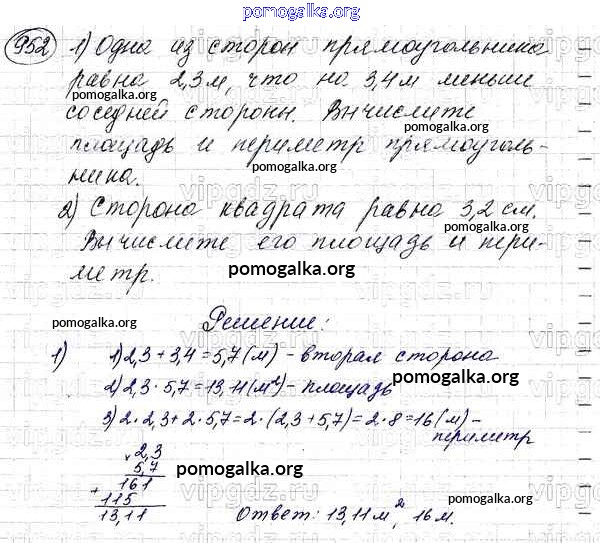 pomogalka.org
952 1) Одна из сторон прямоугольника
равна 2,3 м, что на 3,4 м меньше
соседней стороны. Вычислите
pomogalka.org
площадь и периметр прямоуголь-
ника.
pomogalka.org
2) Сторона квадрата равна 3,2 см.
Вычислите его площадь и пери-
метр.
pomogalka.org
Решение:
pomogalka.org
1) 1) 2,3 + 3,4 = 5,7 (м) - вторая сторона
2) 2,3 · 5,7 = 13,11 (м²) - площадь
pomogalka.org
3) 2 · 2,3 + 2 · 5,7 = 2 · (2,3 + 5,7) = 2 · 8 = 16 (м) -
периметр
× 2,3
5,7
pomogalka.org
161
+ 115
13,11
pomogalka.org
Ответ: 13,11 м², 16 м.
vipgdz.ru